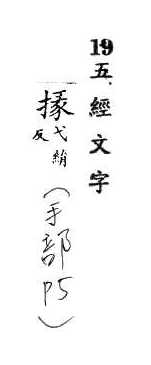 19五.經文字
掾弋絹反(手部P5)